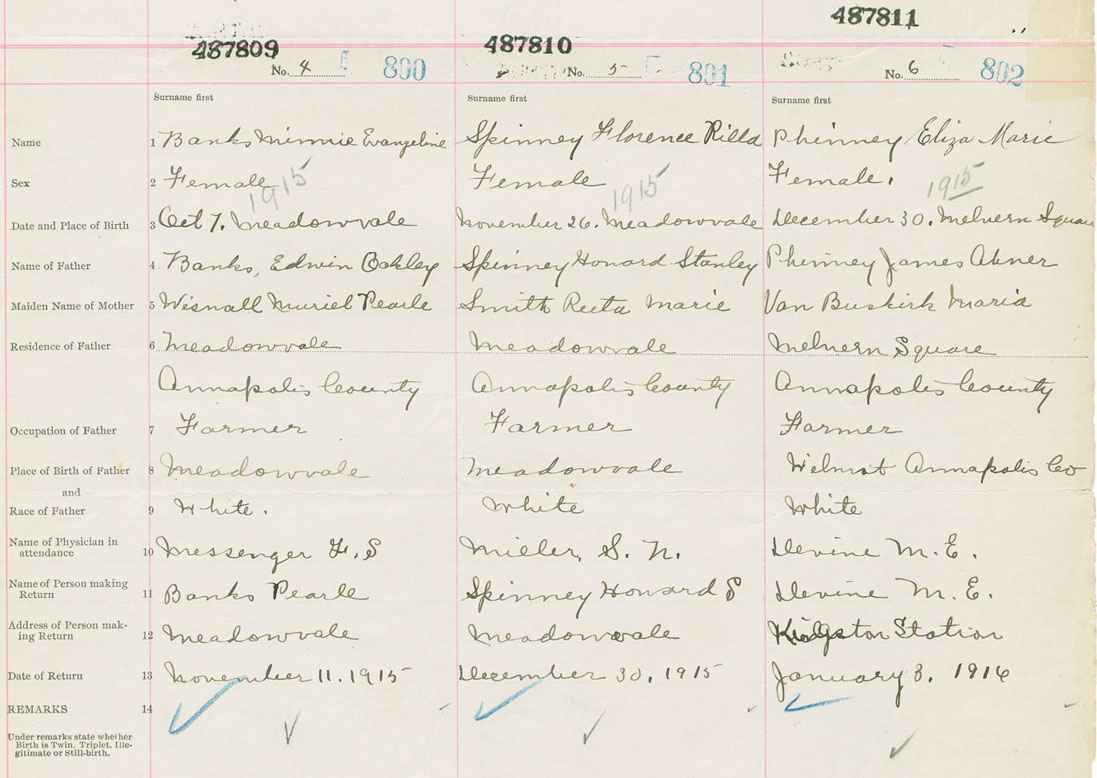 487809 487810 487811
No. 4 800 No. 5 801 No. 6 802
Surname first Surname first Surname first
Name 1 Banks Minnie Evangeline Spinney Florence Rilla Phinney Eliza Marie
Sex 2 Female Female Female.
1915 1915 1915
Date and Place of Birth 3 Oct 7. Meadowvale November 26. Meadowvale December 30. Melvern Square
Name of Father 4 Banks, Edwin Oakley Spinney Howard Stanley Phinney James Abner
Maiden Name of Mother 5 Wisnall Muriel Pearle Smith Reeta Marie Van Buskirk Maria
Residence of Father 6 Meadowvale Meadowvale Melvern Square
Annapolis County Annapolis County Annapolis County
Occupation of Father 7 Farmer Farmer Farmer
Place of Birth of Father 8 Meadowvale Meadowvale Wilmot Annapolis Co
and
Race of Father 9 White. White White
Name of Physician in
attendance 10 Messenger F. S Miller, S. N. Devine M. E.
Name of Person making
Return 11 Banks Pearle Spinney Howard S Devine M. E.
Address of Person mak-
ing Return 12 Meadowvale Meadowvale Kingston Station
Date of Return 13 November 11. 1915 December 30, 1915 January 3. 1916
REMARKS 14
Under remarks state whether
Birth is Twin. Triplet, Ille-
gitimate or Still-birth.